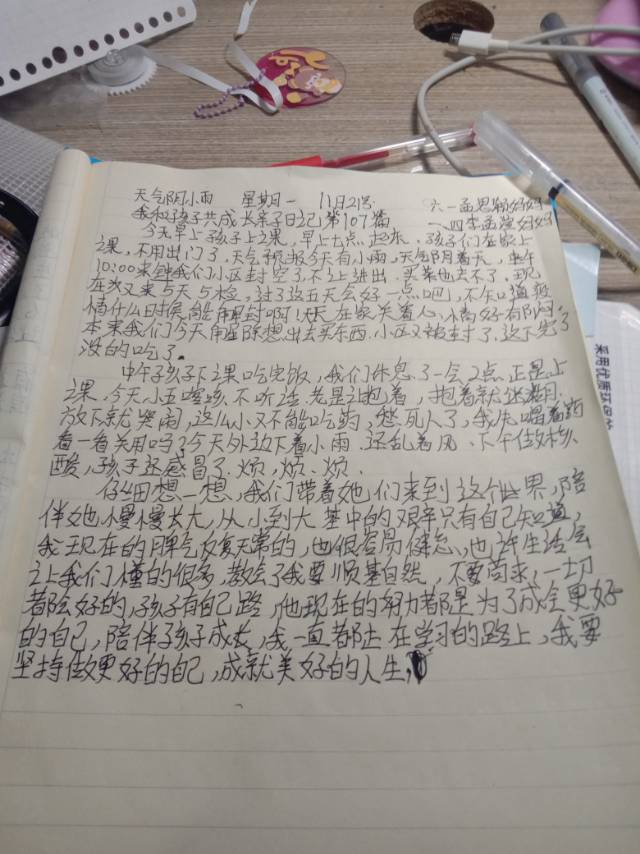 天气阴小雨 星期一 11月21号 六一孟思颖妈妈
我和孩子共成长亲子日记第107篇 一、四李孟莹妈妈
今天早上孩子上课,早上七点起床,孩子们在家上
课,不用出门了,天气预报今天有小雨,天气阴着天,上午
10:00来钟我们小区封空了,不让进出,买菜也去不了,现
在我又来5天5检,过了这五天会好一点吧!不知道疫
情什么时候能解封啊!天天在家关着心情好有郁闷,
本来我们今天用星际想出去买东西.小区又被封了.这下完了
没的吃了.
中午孩子下课吃完饭,我们休息了一会2点正是上
课,今天小五咳嗽不听话.老是让抱着,抱着就迷糊.
放下就哭闹,这么小又不能吃药,愁死人了,我先喝着药
看一看关用吗?今天外边下着小雨.还乱着风、下午做核
酸,孩子还感冒了.烦,烦、烦.
仔细想一想,我们带着她们来到这个世界,陪
伴她慢慢长大,从小到大其中的艰辛只有自己知道,
我现在的脾气反复无常的,也很容易健忘、也许生活会
让我们懂的很多,教会了我要顺其自然,不要苟求,一切
都会好的,孩子有自己路,他现在的努力都是为了成全更好
的自己,陪伴孩子成长,我一直都在学习的路上,我要
坚持做更好的自己,成就美好的人生,
采用优质环保